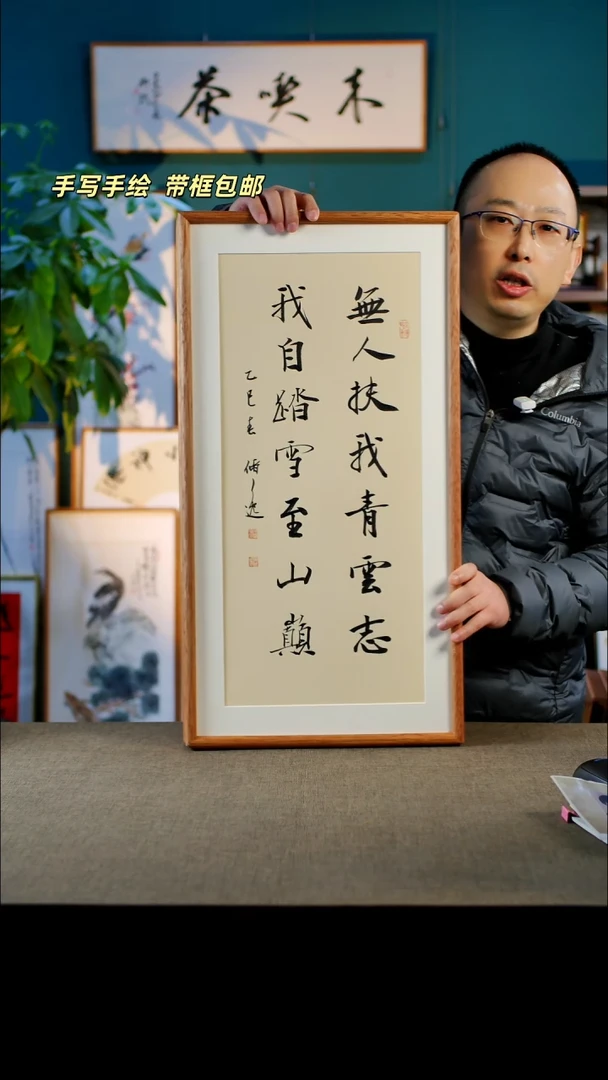 末喫茶
手写手绘 带框包邮
無人扶我青雲志
我自踏雪至山巔
乙巳春
Columbia